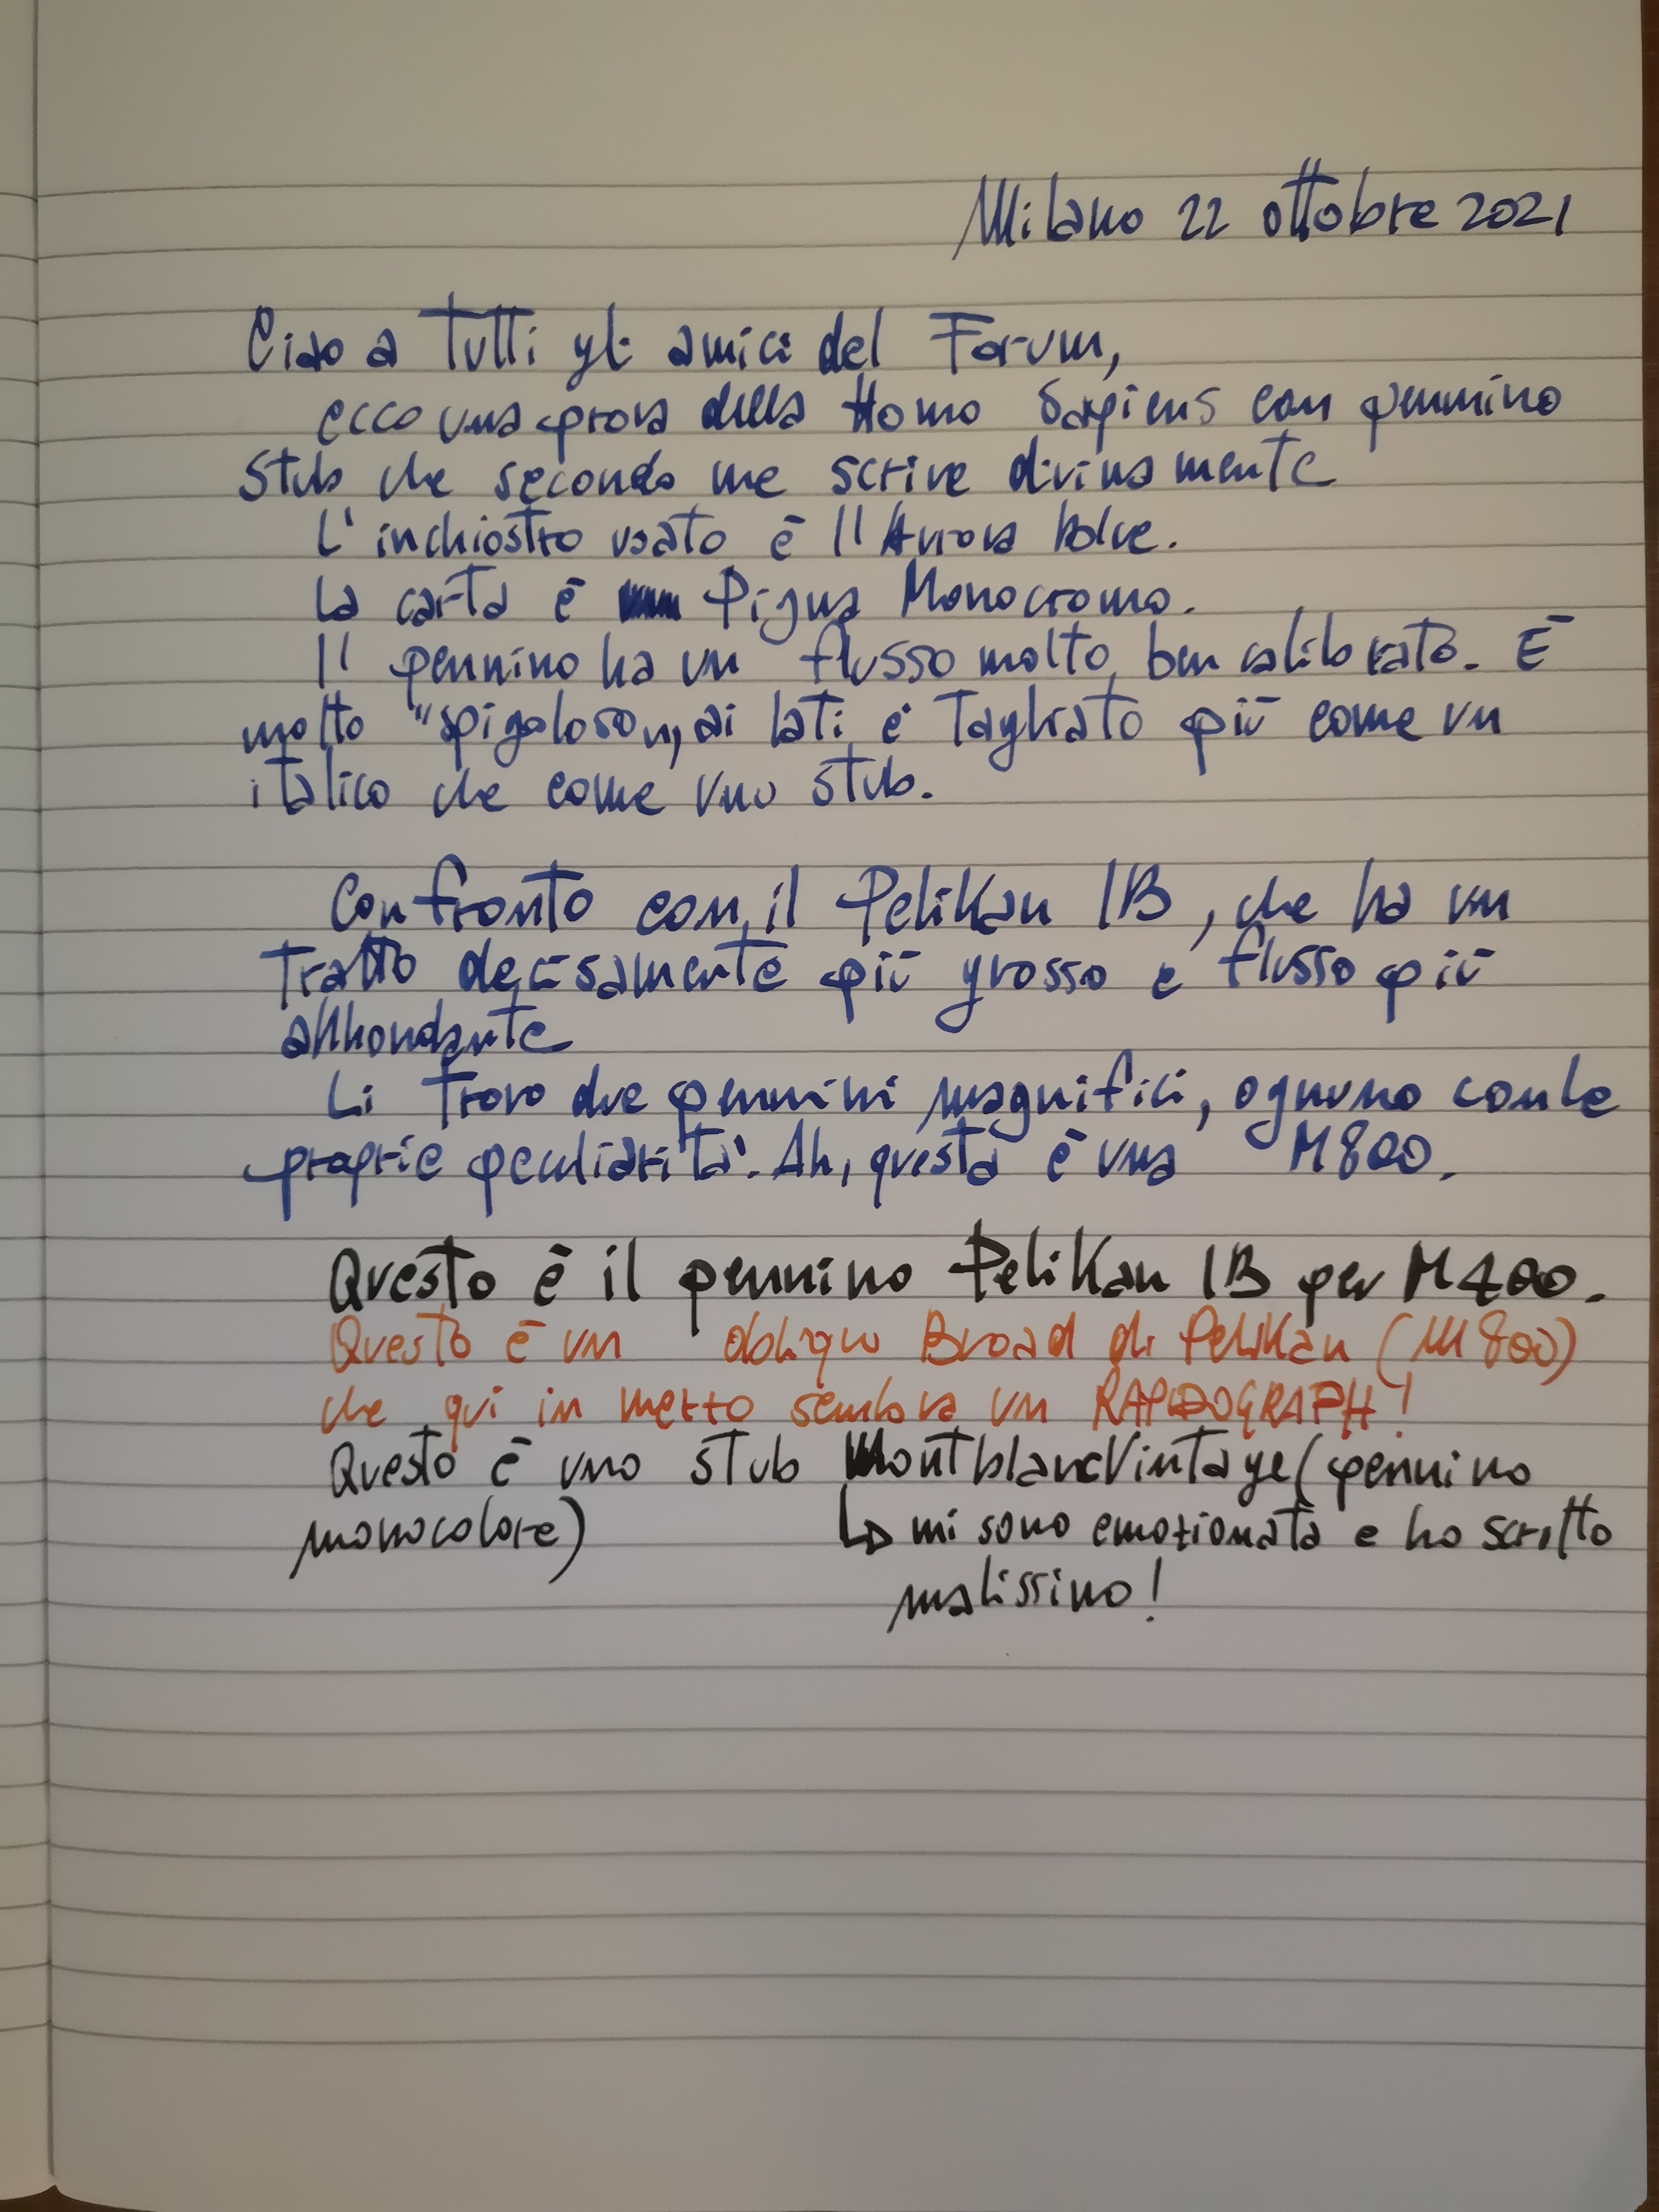 Milano 22 ottobre 2021
Ciao a tutti gli amici del Forum,
ecco una prova della Homo Sapiens con pennino
stub che secondo me scrive divinamente
L'inchiostro usato è il Aurora Blue.
La carta è Pigna Monocromo.
Il pennino ha un flusso molto ben calibrato. È
molto "spigoloso", ai lati è tagliato più come un
italico che come uno stub.
Confronto con il Pelikan IB, che ha un
tratto decisamente più grosso e flusso più
abbondante
Li trovo due pennini magnifici, ognuno con le
proprie peculiarità. Ah, questa è una M800.
Questo è il pennino Pelikan IB per M400.
Questo è un obliquo Broad di Pelikan (M800)
che qui in mezzo sembra un RAPIDOGRAPH!
Questo è uno stub Montblanc Vintage (pennino
monocolore) ↳ mi sono emozionata e ho scritto
malissimo!